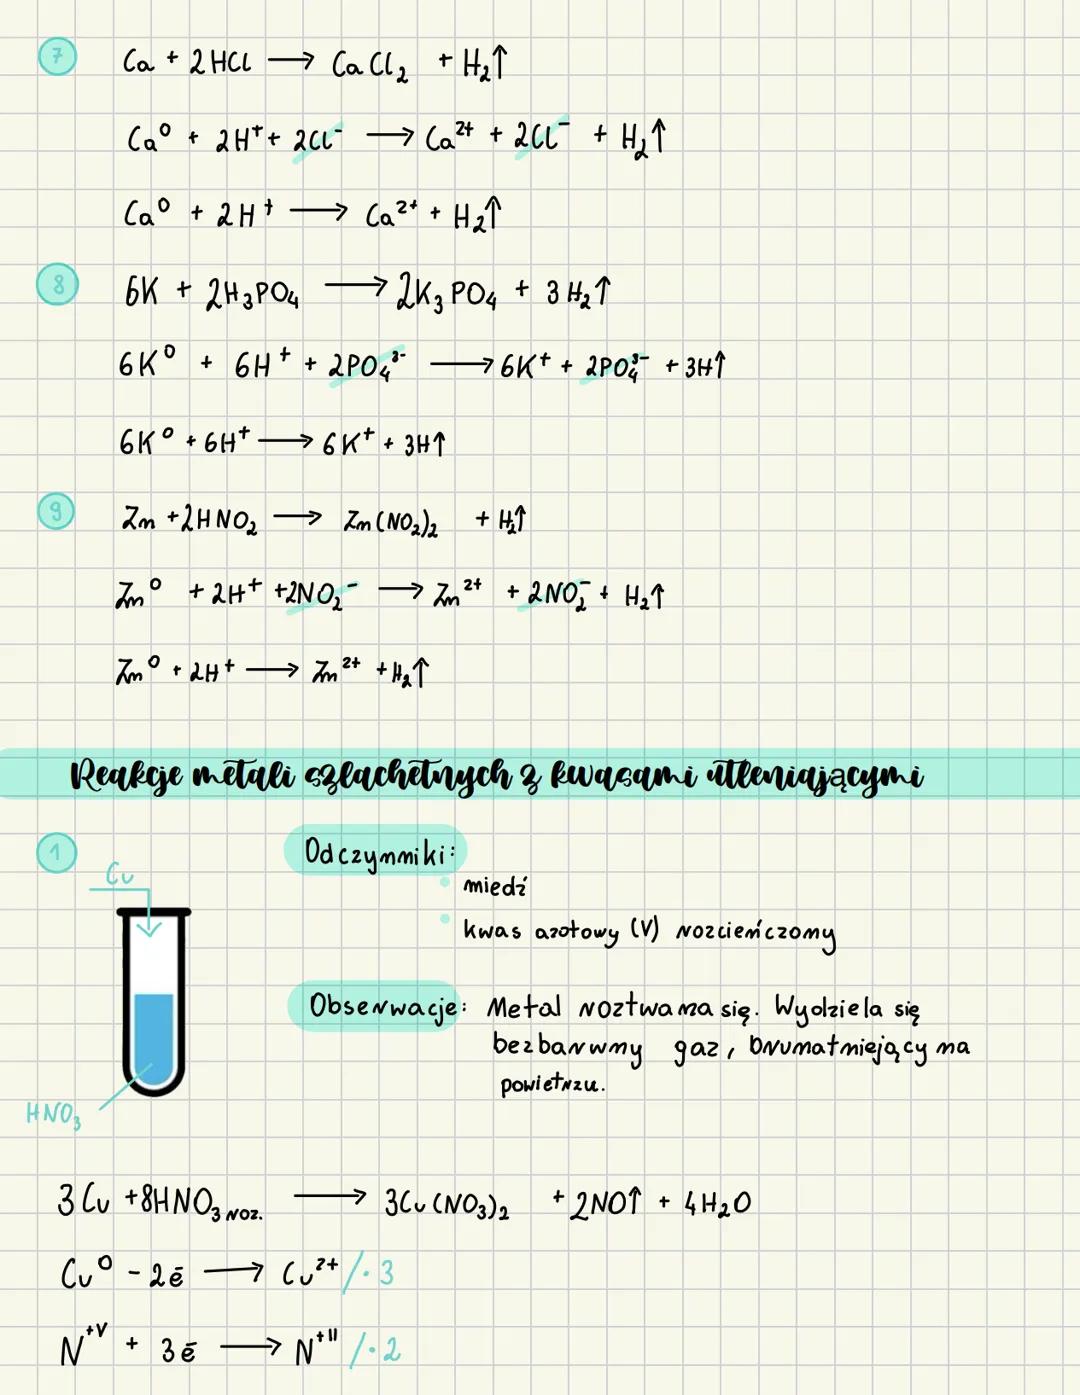 7 Ca + 2HCl ⟶ CaCl₂ + H₂↑
Ca⁰ + 2H⁺ + 2Cl⁻ ⟶ Ca²⁺ + 2Cl⁻ + H₂↑
Ca⁰ + 2H⁺ ⟶ Ca²⁺ + H₂↑
8 6K + 2H₃PO₄ ⟶ 2K₃PO₄ + 3H₂↑
6K⁰ + 6H⁺ + 2PO₄³⁻ ⟶ 6K⁺ + 2PO₄³⁻ + 3H↑
6K⁰ + 6H⁺ ⟶ 6K⁺ + 3H↑
9 Zn + 2HNO₂ ⟶ Zn(NO₂)₂ + H₂↑
Zn⁰ + 2H⁺ + 2NO₂⁻ ⟶ Zn²⁺ + 2NO₂⁻ + H₂↑
Zn⁰ + 2H⁺ ⟶ Zn²⁺ + H₂↑
Reakcje metali szlachetnych z kwasami utleniającymi
1
Cu
Odczynniki:
miedź
kwas azotowy (V) rozcieńczony
Obserwacje: Metal roztwarza się. Wydziela się
bezbarwny gaz, brunatniejący na
powietrzu.
HNO₃
3Cu + 8HNO₃ roz. ⟶ 3Cu(NO₃)₂ + 2NO↑ + 4H₂O
Cu⁰ - 2ē ⟶ Cu²⁺ /·3
N⁺ⱽ + 3ē ⟶ N⁺ᴵᴵ /·2